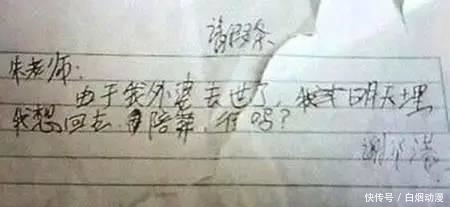 请假条
朱老师:
由于我外婆去世了,我明天埋
我想回去陪葬,行吗?
谢
快传号/白烟动漫